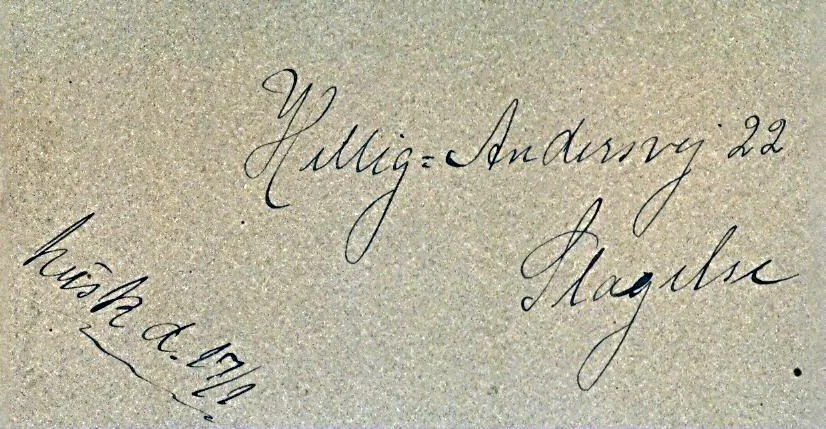 Hellig=Andersvej 22
Slagelse
husk d. 17/1